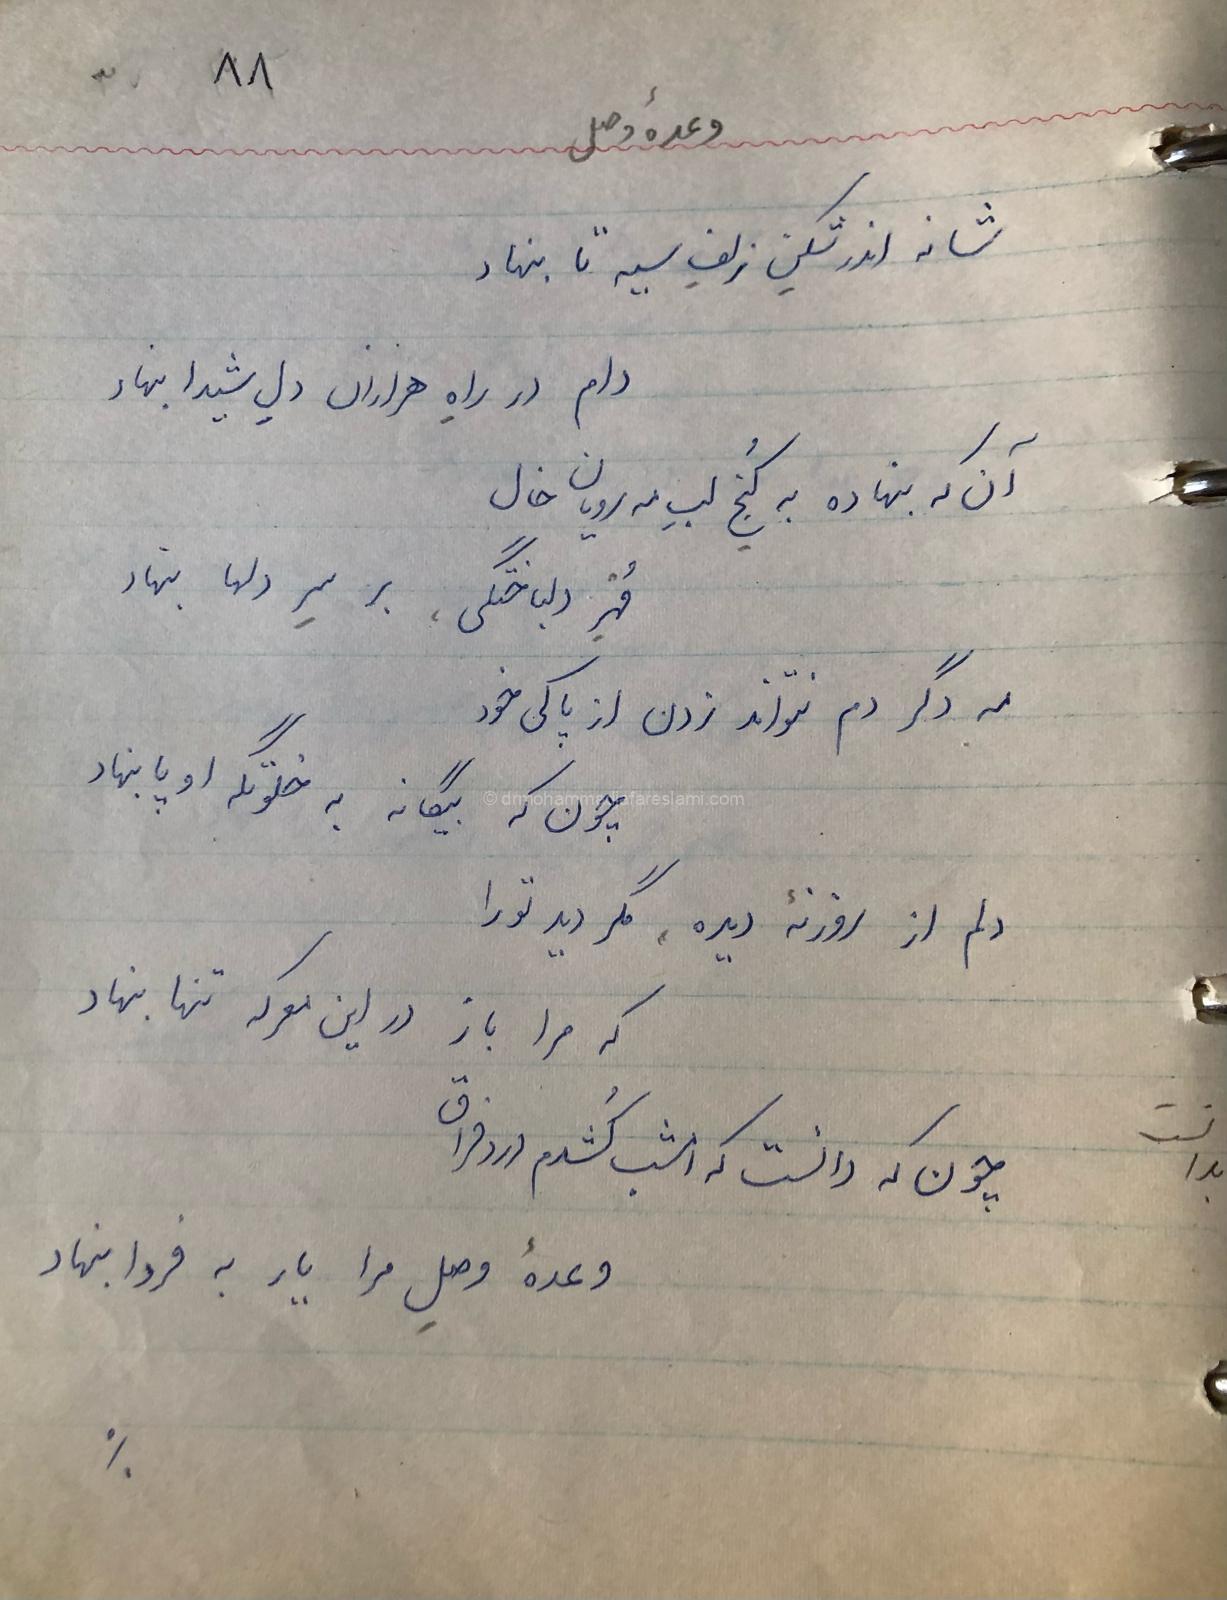 ۸۸
وعدهٔ وصل
شانه اندر شکنِ زلفِ سیه تا بنهاد
دام در راهِ هزاران دلِ شیدا بنهاد
آن که بنهاده به کُنجِ لبِ مه رویان خال
مُهرِ دلباختگی، بر سرِ دلها بنهاد
مه دگر دم نتواند زدن از پاکی خود
چون که بیگانه به خلوتگه او پا بنهاد
© drmohammadjafareslami.com
دلم از روزنهٔ دیده، مگر دید تو را
که مرا باز در این معرکه تنها بنهاد
چون که دانست که امشب کُشدم درد فراق
بدانست
وعدهٔ وصلِ مرا یار به فردا بنهاد